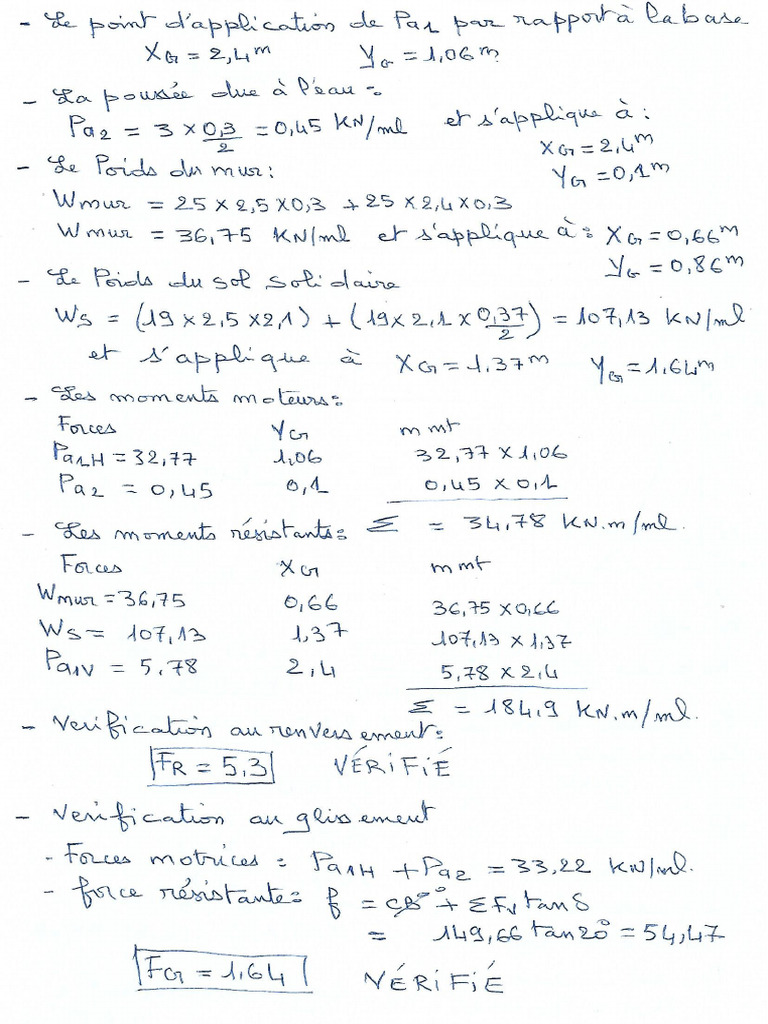 - Le point d'application de Pa1 par rapport à la base
XG = 2,4m YG = 1,06m
- La poussée due à l'eau :
Pa2 = 3 × 0,3/2 = 0,45 KN/ml et s'applique à :
XG = 2,4m
YG = 0,1m
- Le Poids du mur :
Wmur = 25 × 2,5 × 0,3 + 25 × 2,4 × 0,3
Wmur = 36,75 KN/ml et s'applique à : XG = 0,66m
YG = 0,86m
- Le Poids du sol solidaire
WS = (19 × 2,5 × 2,1) + (19 × 2,1 × 0,37/2) = 107,13 KN/ml
et s'applique à XG = 1.37m YG = 1.64m
- Les moments moteurs :
Forces YG mmt
Pa1H = 32,77 1,06 32,77 × 1,06
Pa2 = 0,45 0,1 0,45 × 0,1
- Les moments résistants : Σ = 34,78 KN.m/ml.
Forces XG mmt
Wmur = 36,75 0,66 36,75 × 0,66
WS = 107,13 1,37 107,13 × 1,37
Pa1V = 5,78 2,4 5,78 × 2.4
Σ = 184,9 KN.m/ml.
- Verification au renversement :
FR = 5,3 VÉRIFIÉ
- Verification au glissement
- Forces motrices : Pa1H + Pa2 = 33,22 KN/ml.
- force résistante : f = cB + ΣFV tan δ
= 149,66 tan 20° = 54,47
FG = 1,64 VÉRIFIÉ